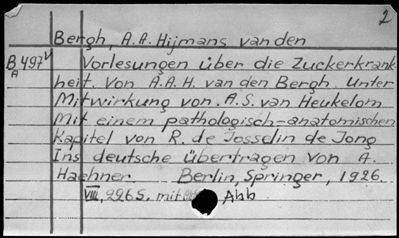 2
Bergh, A.A. Hijmans van den
B 497 Vorlesungen über die Zuckerkrank-
A heit. Von A.A.H. van den Bergh. Unter
Mitwirkung von A.S. van Heukelom
Mit einem pathologisch-anatomischen
Kapitel von R. de Josselin de Jong
Ins deutsche übertragen von A.
Haehner Berlin, Springer, 1926.
VIII, 226 S. mit Abb